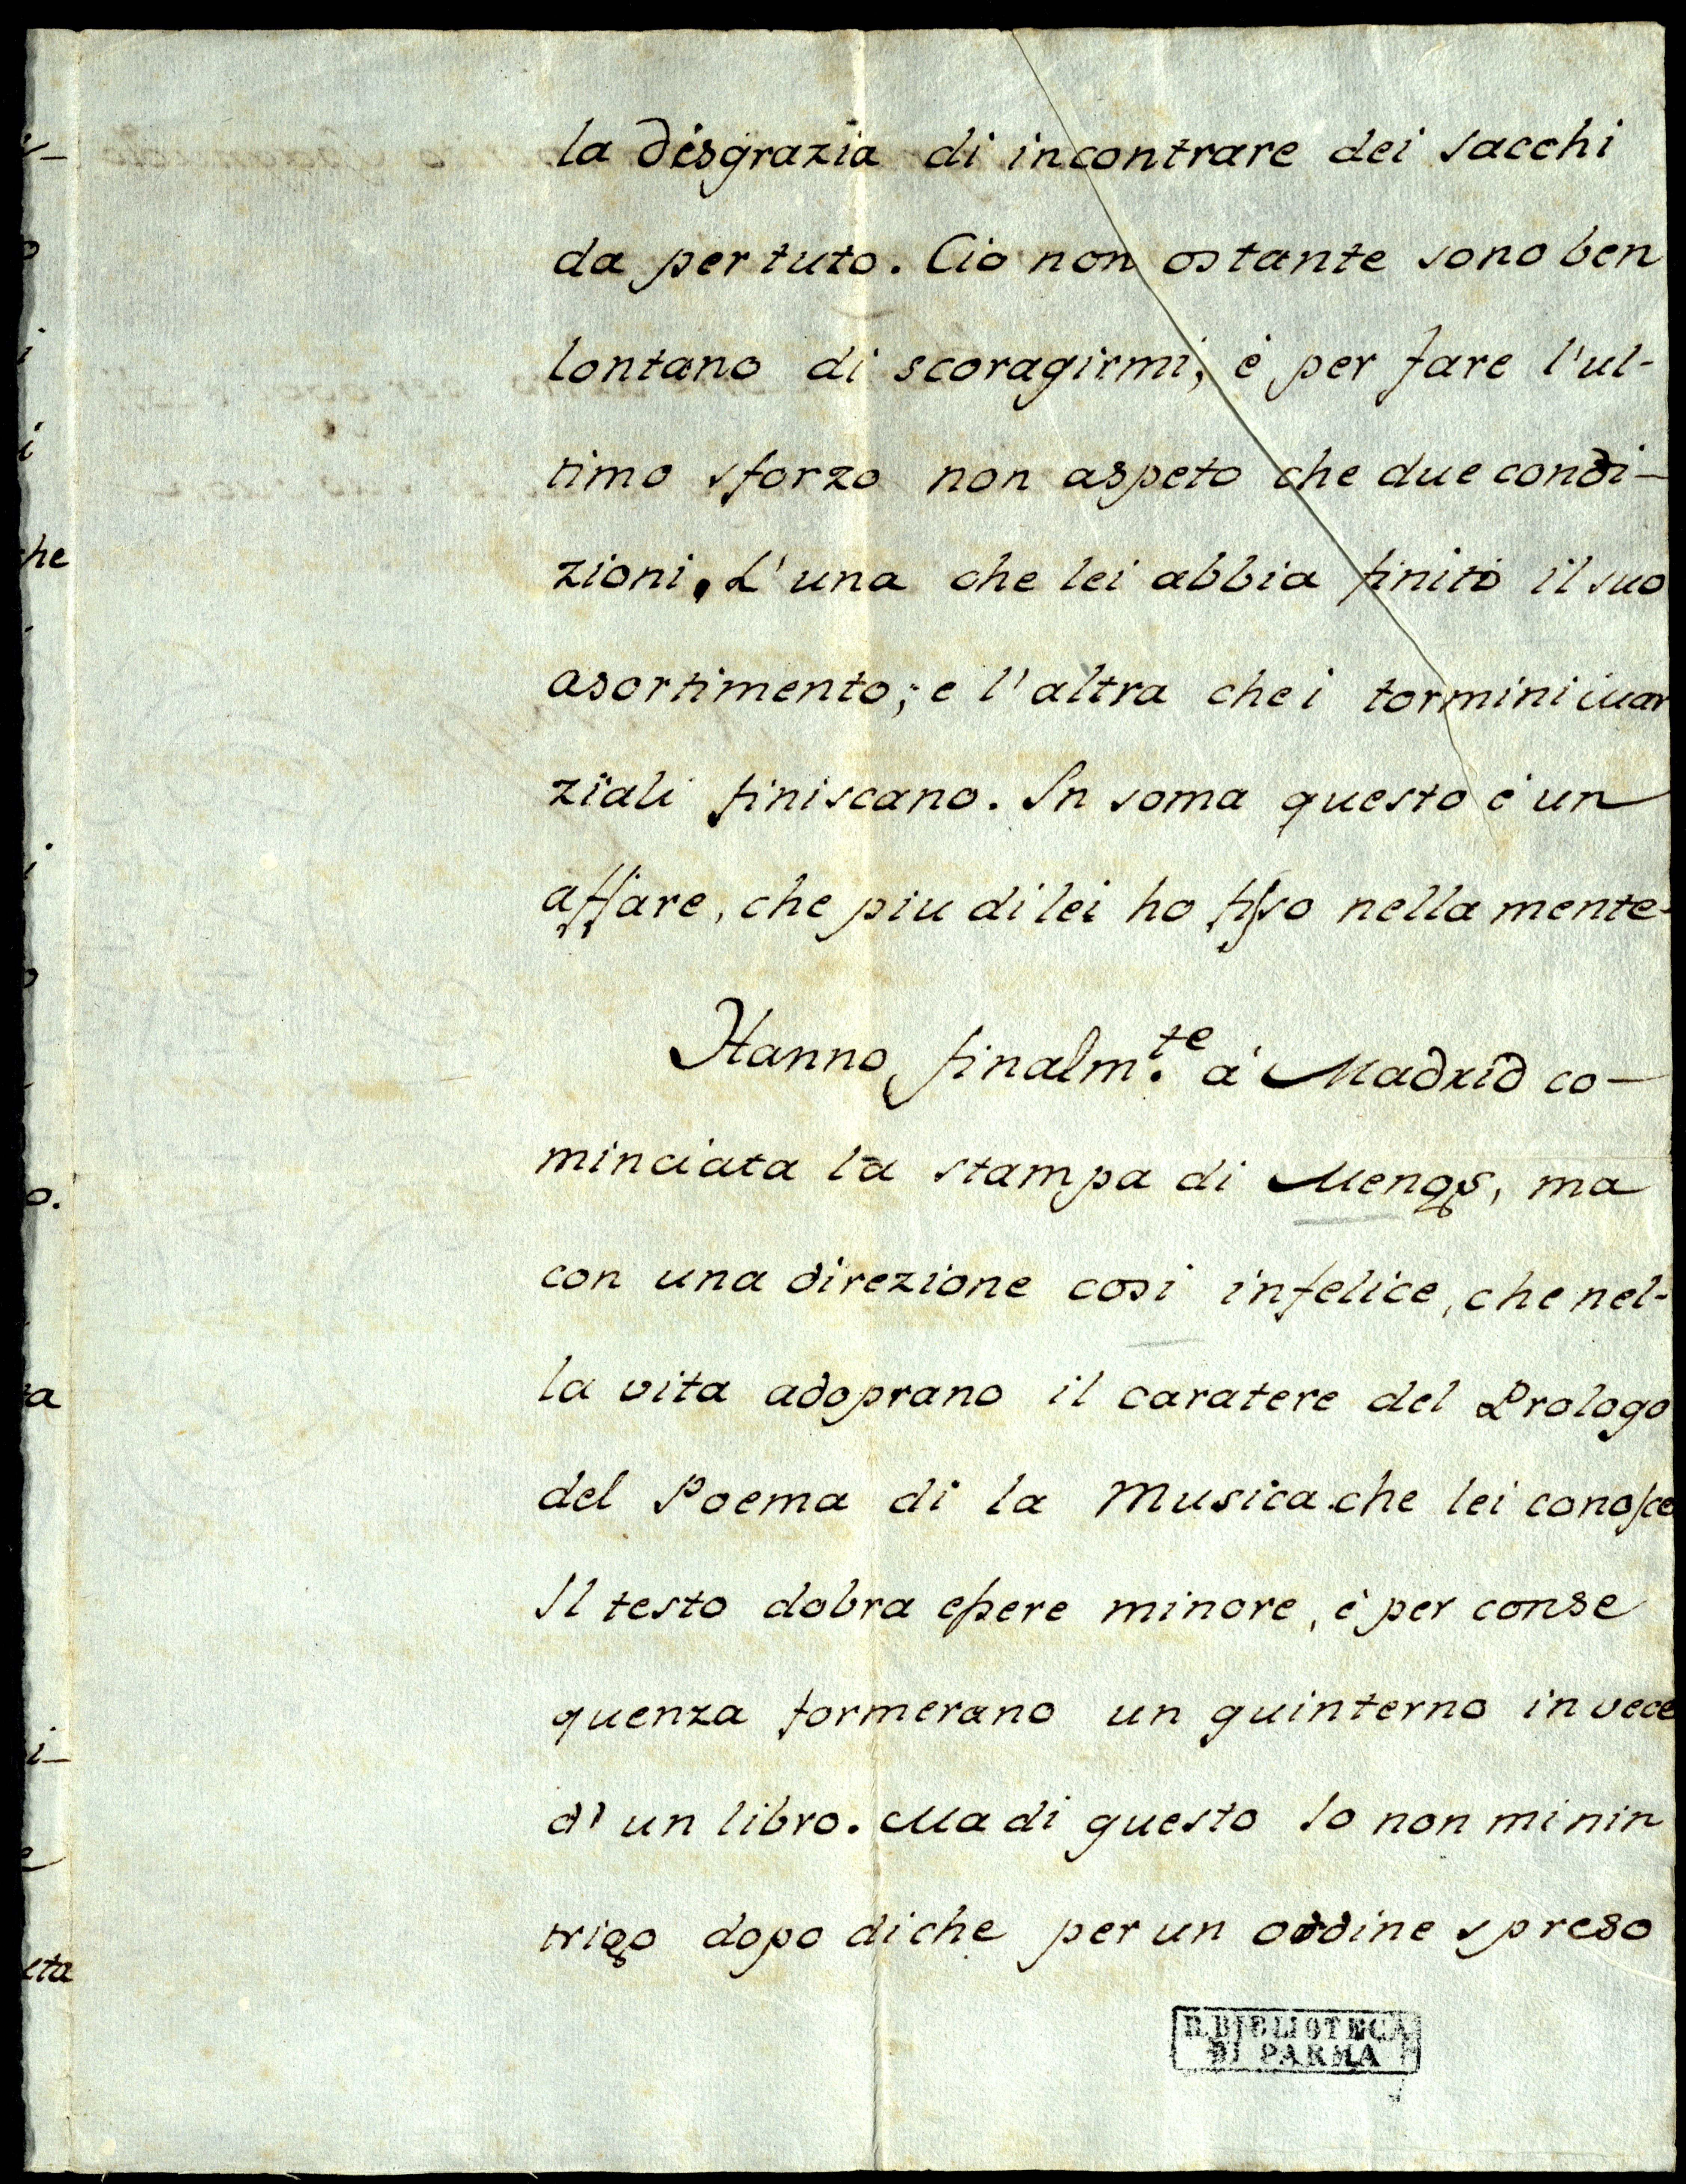 la disgrazia di incontrare dei sacchi
da per tuto. Cio non ostante sono ben
lontano di scoragirmi, é per fare l'ul-
timo sforzo non aspeto che due condi-
zioni. L'una che lei abbia finito il suo
asortimento; e l'altra che i tormini
ziali finiscano. In soma questo é un
affare, che piu di lei ho fisso nella mente.
Hanno finalm.te á Madrid co-
minciata la stampa di Mengs, ma
con una direzione cosi infelice, che nel-
la vita adoprano il caratere del Prologo
del Poema di la Musica che lei conosce
Il testo dobra essere minore, é per conse
quenza formerano un quinterno in vece
d' un libro. Ma di questo Io non mi nin
trigo dopo di che per un ordine spreso
R. BIBLIOTECA
DI PARMA